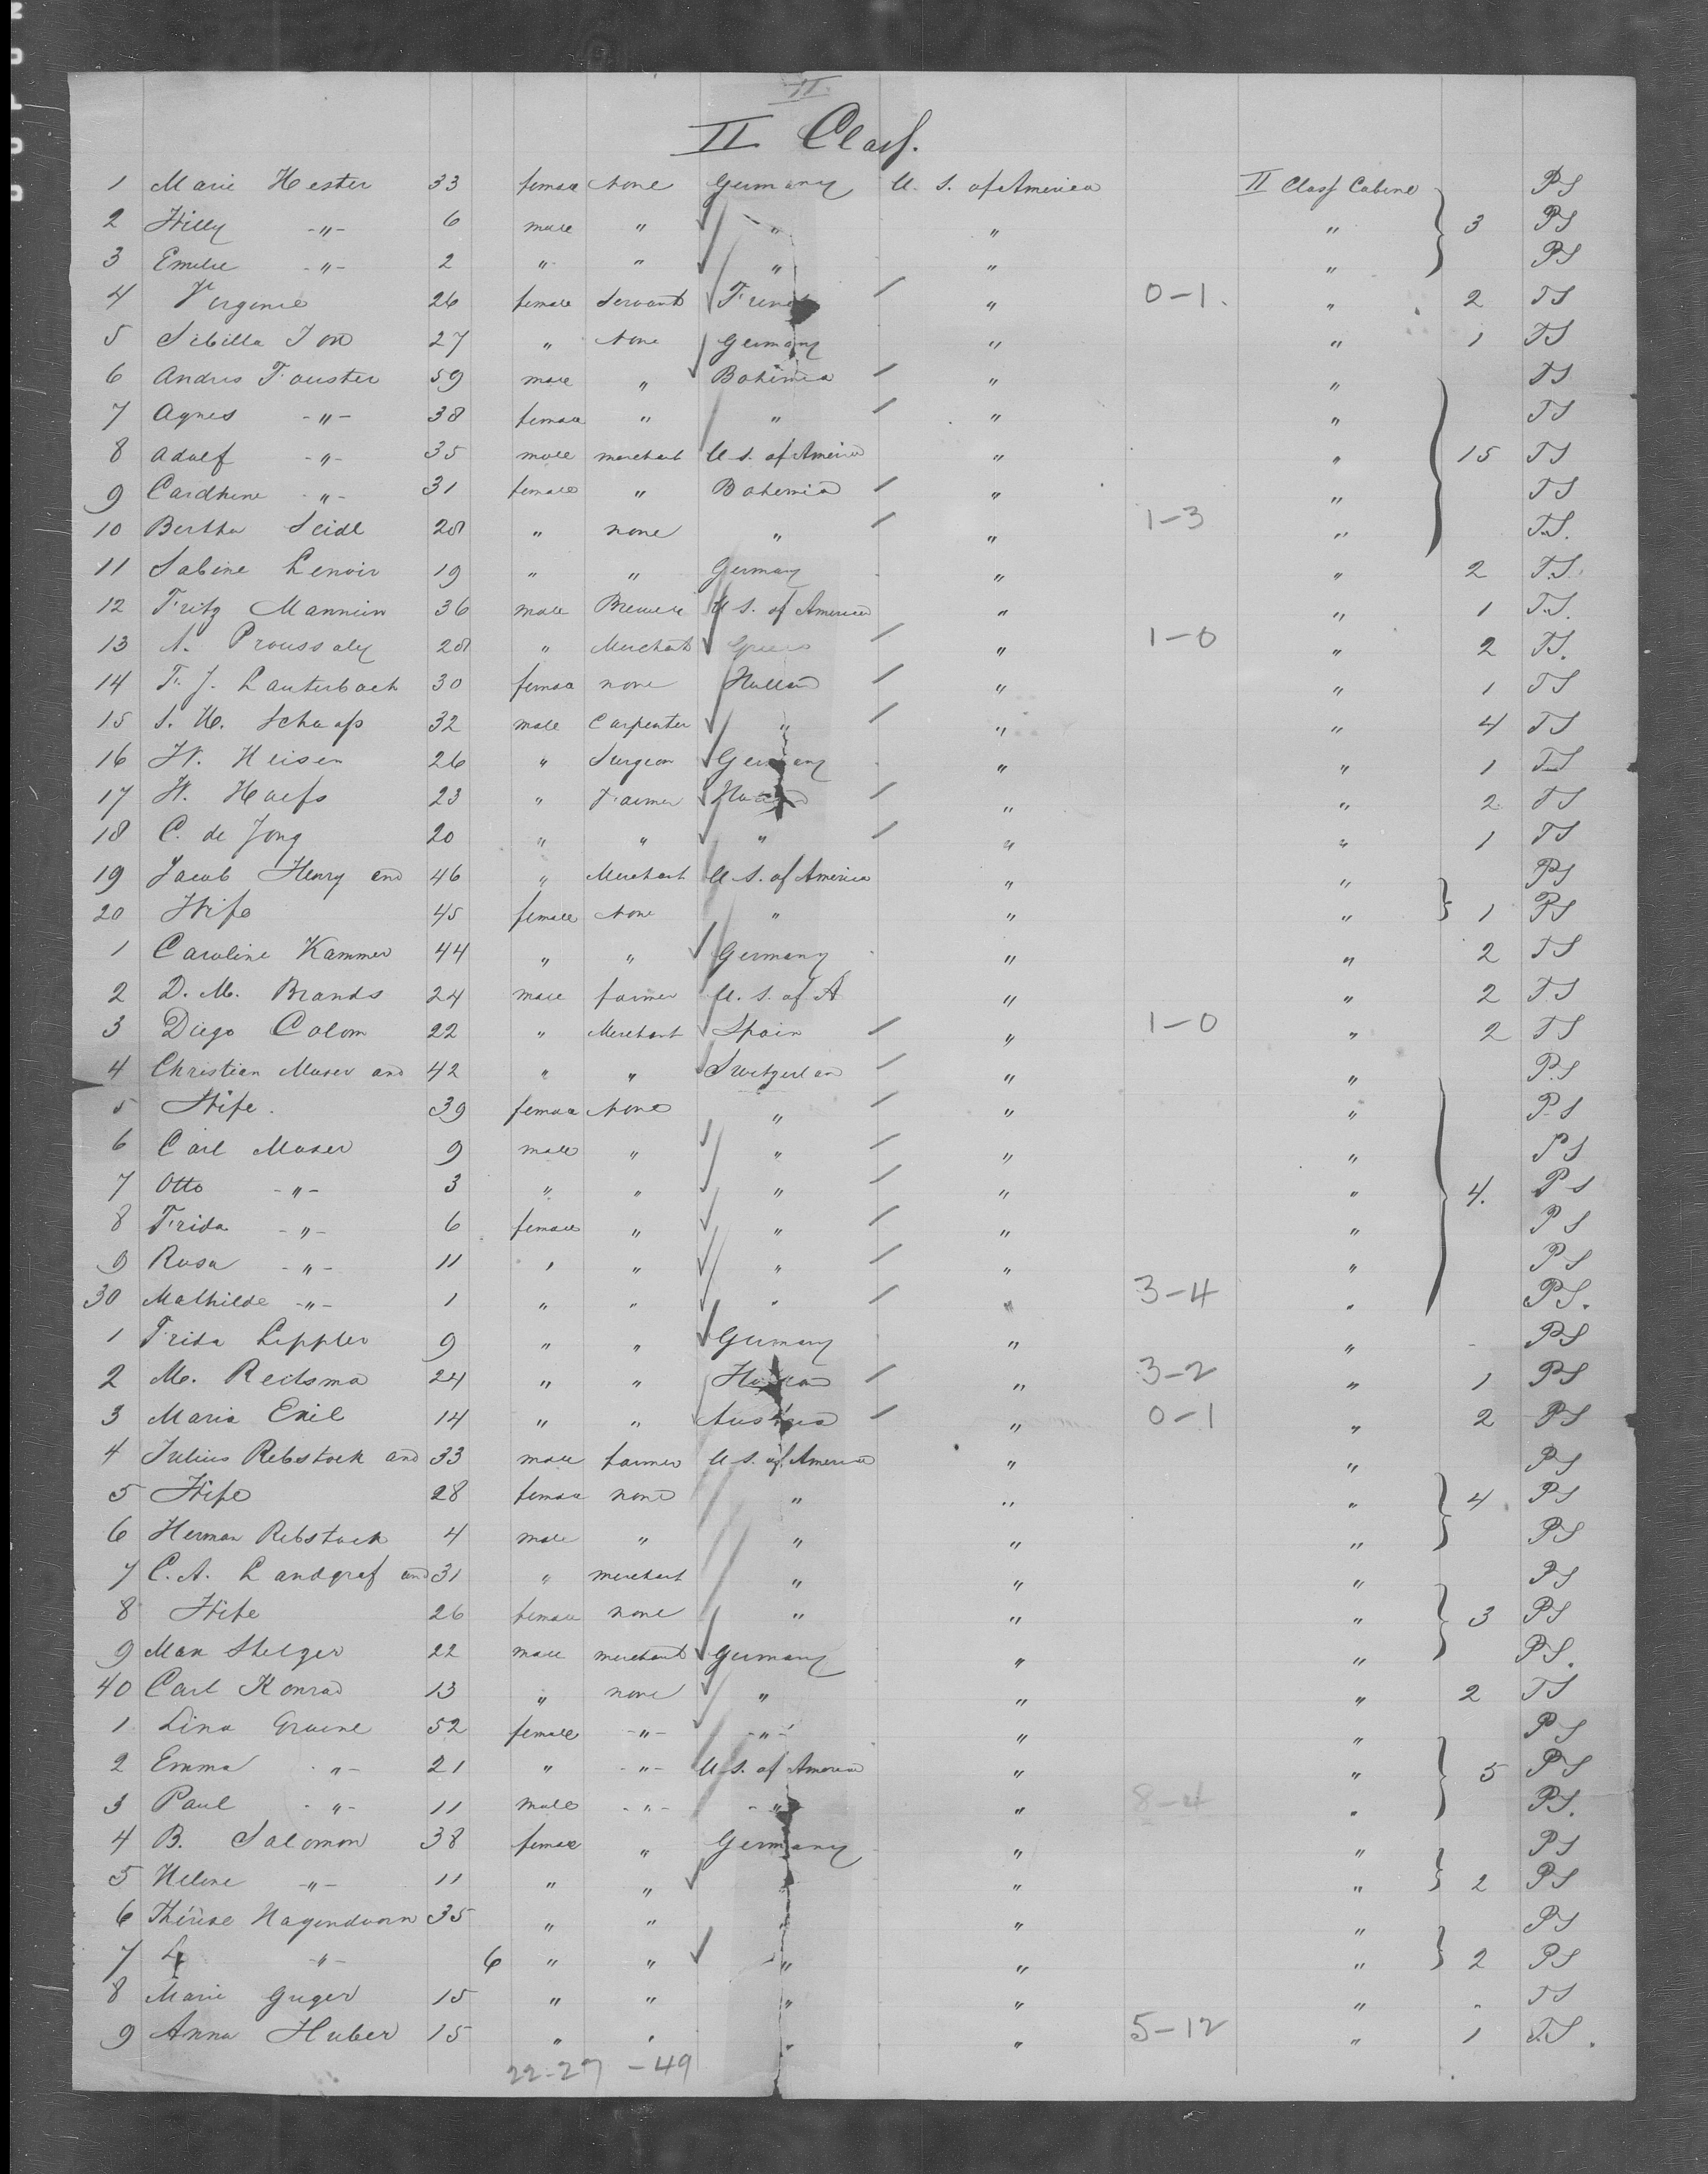 II
II Class.
1 Marie Hester 33 female None Germany U. S. of America II Class Cabine PS
2 Willy -"- 6 male " " " " 3 PS
3 Emilie -"- 2 " " " " " PS
4 Virginie 26 female Servant French " 0-1. " 2 TS
5 Sibilla 27 " None Germany " " 1 TS
6 Andres Fouster 59 male " Bohemia " " TS
7 Agnes -"- 38 female " " " " TS
8 Adolf -"- 35 male merchant U. S. of America " " 15 TS
9 -"- 31 female " Bohemia " " TS
10 Bertha Seidl 28 " none " " 1-3 " T.S.
11 Sabine Lenoir 19 " " Germany " " 2 T.S.
12 Fritz 36 male U. S. of America " " 1 T.S.
13 A. 28 " Merchant " 1-0 " 2 TS.
14 F. J. Lauterbach 30 female none Holland " " 1 TS
15 32 male Carpenter " " " 4 TS
16 W. Heisen 26 " Surgeon Germany " " 1 TS
17 W. 23 " Farmer Holland " " 2 TS
18 C. de Jong 20 " " " " " 1 TS
19 Jacob Henry and 46 " Merchant U. S. of America " " PS
20 Wife 45 female None " " " 1 PS
1 Caroline Kammer 44 " " Germany " " 2 TS
2 D. M. Brands 24 male farmer U. S. of A " " 2 TS
3 Diego Colom 22 " Merchant Spain " 1-0 " 2 TS
4 Christian Moser and 42 " " Switzerland " " P.S
5 Wife. 39 female None " " " P.S
6 Carl Moser 9 male " " " " PS
7 Otto -"- 3 " " " " " 4. PS
8 Frida -"- 6 female " " " " PS
9 Rosa -"- 11 " " " " " PS
30 Mathilde -"- 1 " " " " 3-4 " PS.
1 Frida Leppler 9 " " Germany " " - PS
2 M. Reitsma 24 " " Holland " 3-2 " 1 PS
3 Maria 14 " " Austria " 0-1 " 2 PS
4 Julius Rebstock and 33 male farmer U. S. of America " " PS
5 Wife 28 female none " " " 4 PS
6 Herman Rebstock 4 male " " " " PS
7 C. A. Landgraf and 31 " merchant " " " PS
8 Wife 26 female none " " " 3 PS
9 Max Stelzer 22 male merchant Germany " " PS.
40 Carl Konrad 13 " none " " " 2 TS
1 Lina 52 female -"- -"- " " PS
2 Emma -"- 21 " -"- U. S. of America " " 5 PS
3 Paul -"- 11 male -"- -"- " 8-4 " PS.
4 B. Salomon 38 female " Germany " " PS
5 Helene -"- 11 " " " " " 2 PS
6 35 " " " " " PS
7 -"- 6 " " " " " 2 PS
8 Marie 15 " " " " " " TS
9 Anna Huber 15 " " " " 5-12 " 1 T.S.
22-27 - 49